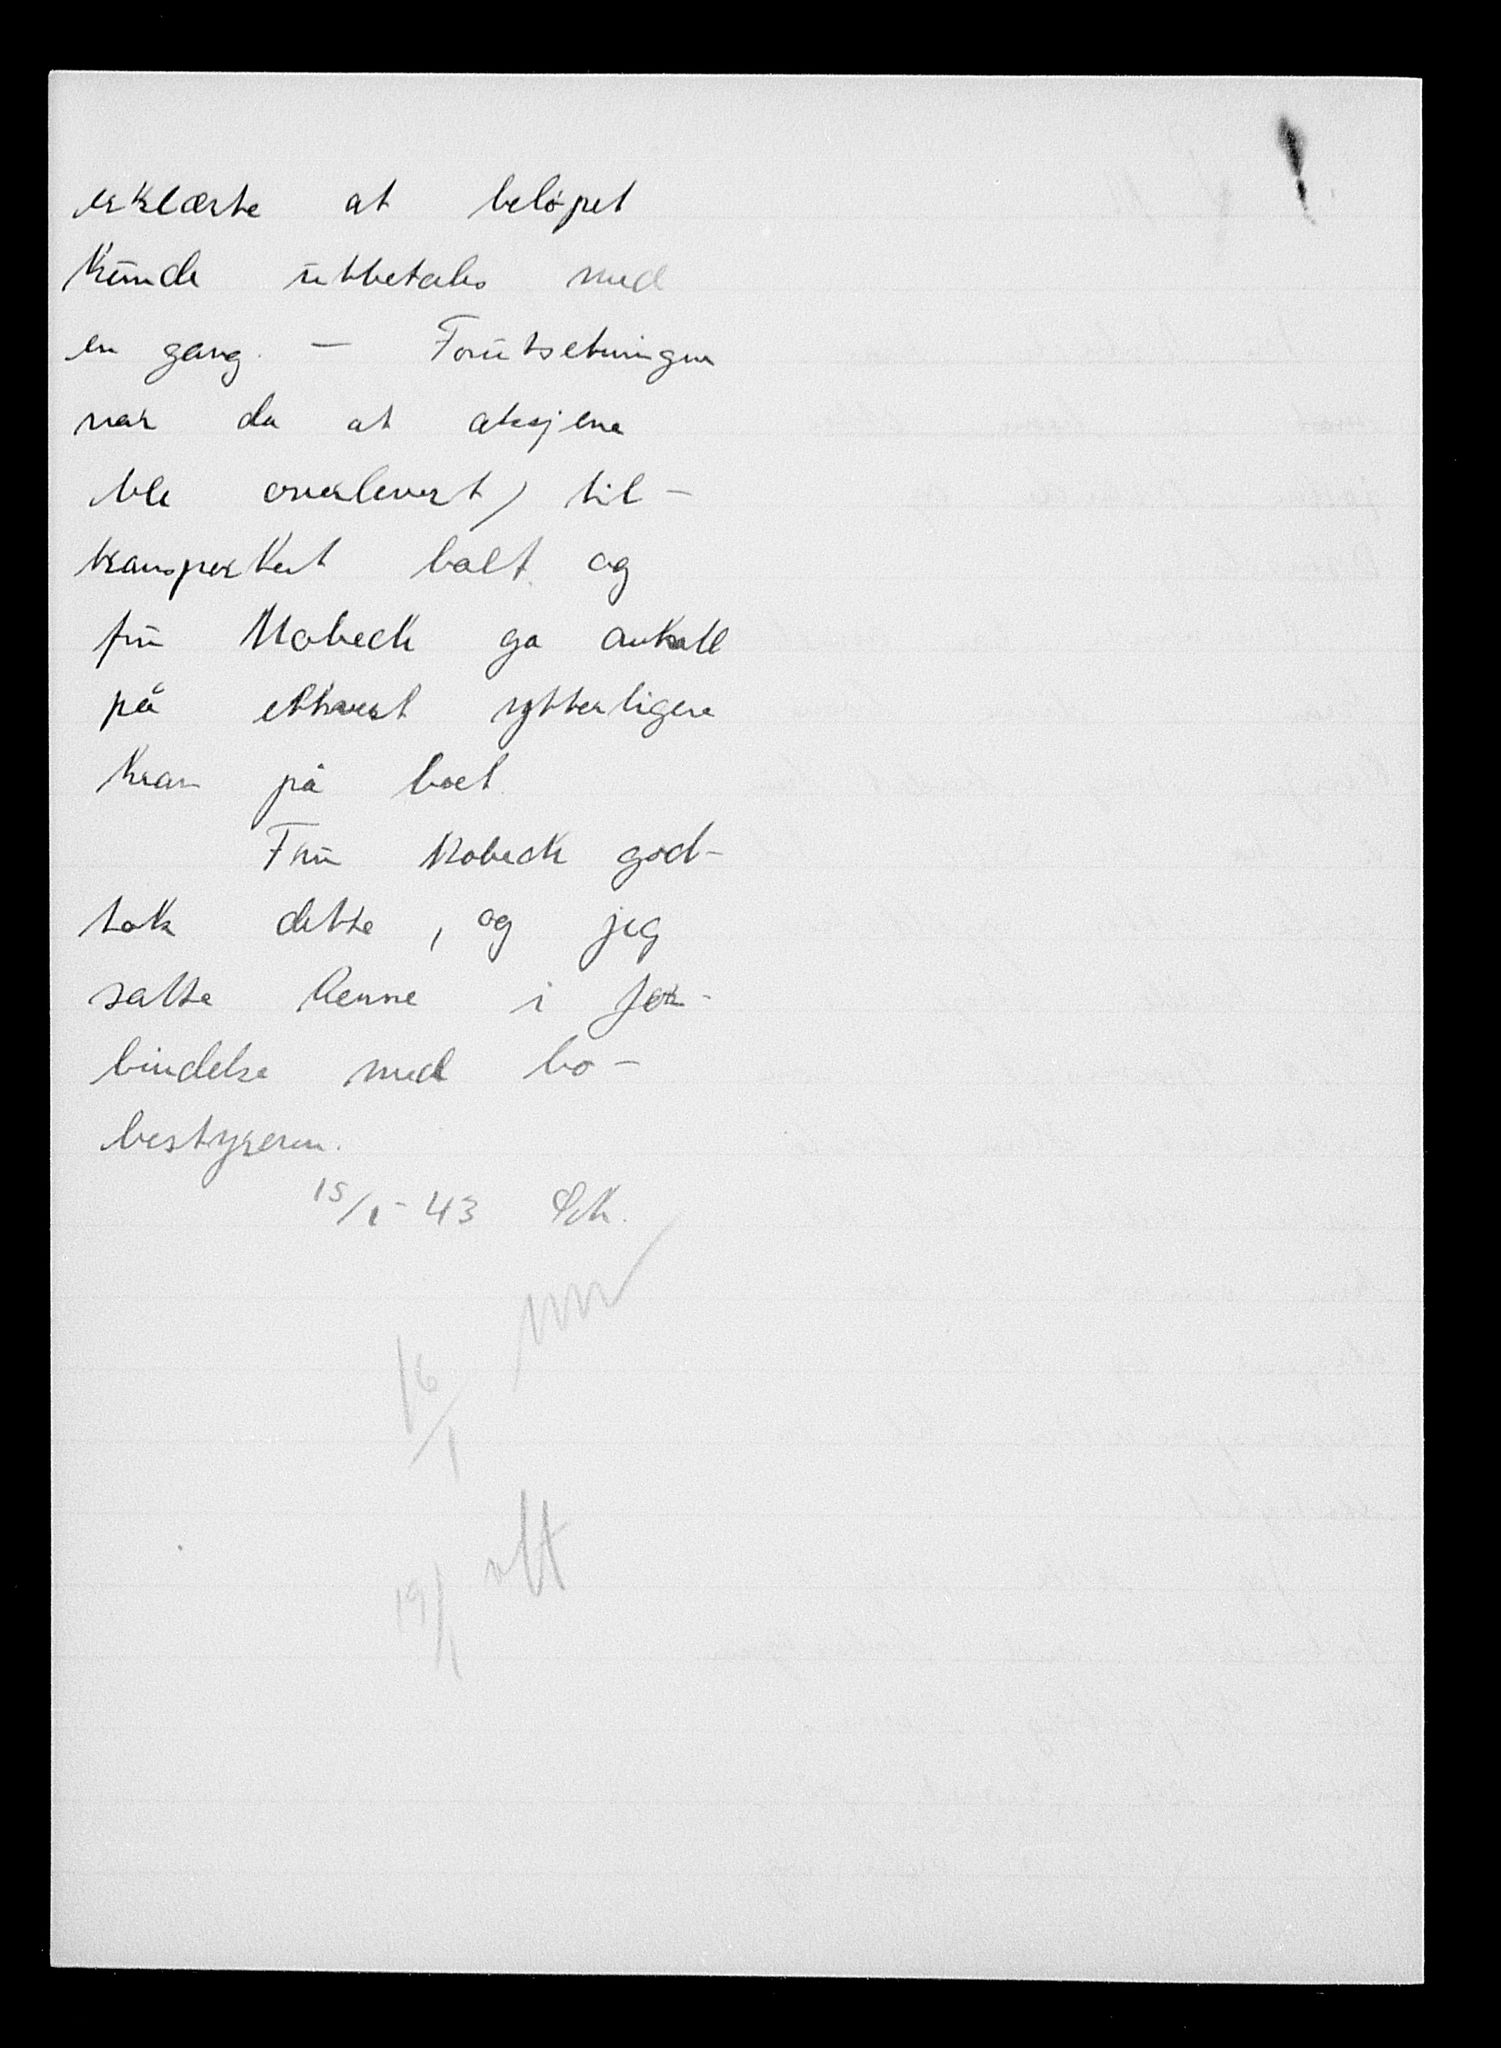 erklærte at beløpet
kunde utbetales med
en gang. — Forutsetningen
var da at aksjene
ble overlevert, til-
transportert boet og
fru Mobeck ga avkall
på ethvert ytterligere
krav på boet.
Fru Mobeck god-
tok dette, og jeg
satte henne i for-
bindelse med bo-
bestyreren.
15/1-43
16/1
19/1